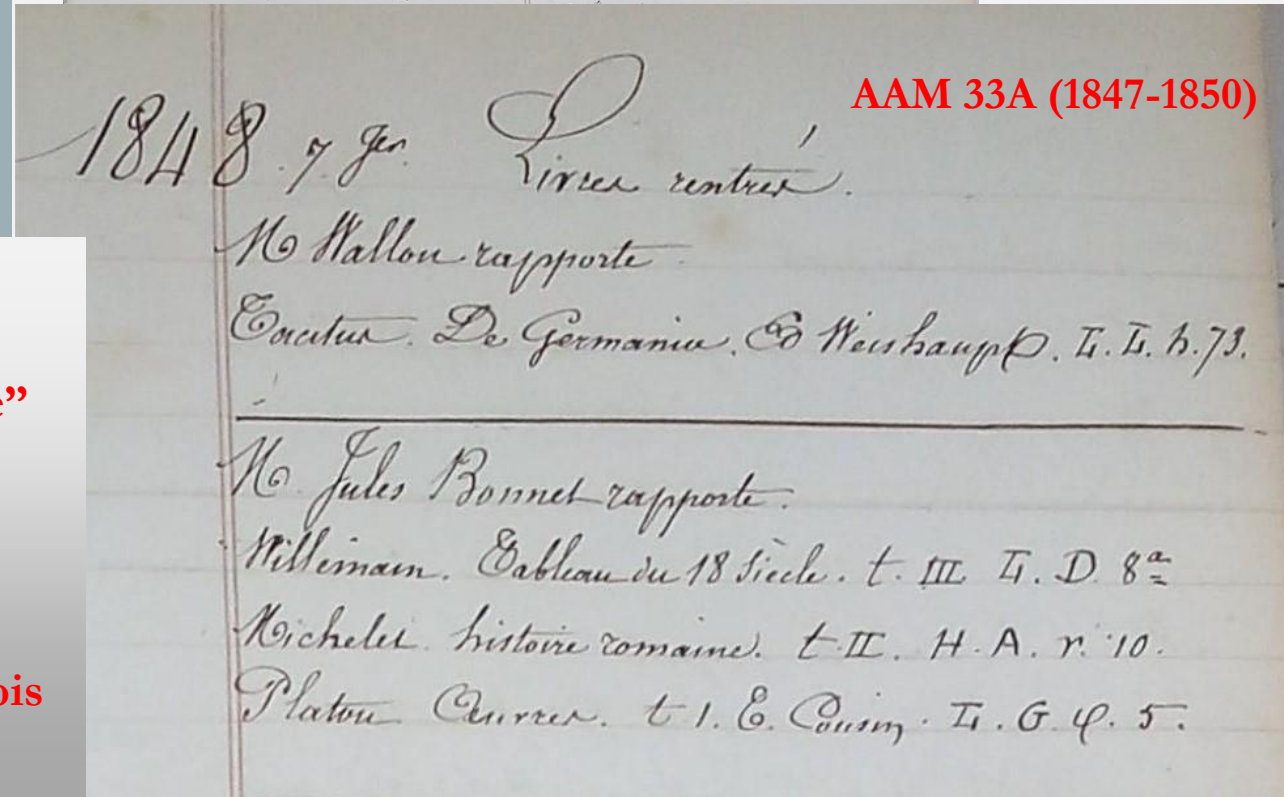 AAM 33A (1847-1850)
1848. 7 Jer. Livres rentrés.
M Wallon rapporte
Tacitus. De Germania. Ed Weishaupt. L. L. h. 73.
e”
ois
M. Jules Bonnet rapporte.
Villemain. Tableau du 18 Siècle. t. III L. D. 8ª
Michelet histoire romaine. t. II. H. A. r. 10.
Platon Œuvres. t 1. E. Cousin. L. G. φ. 5.